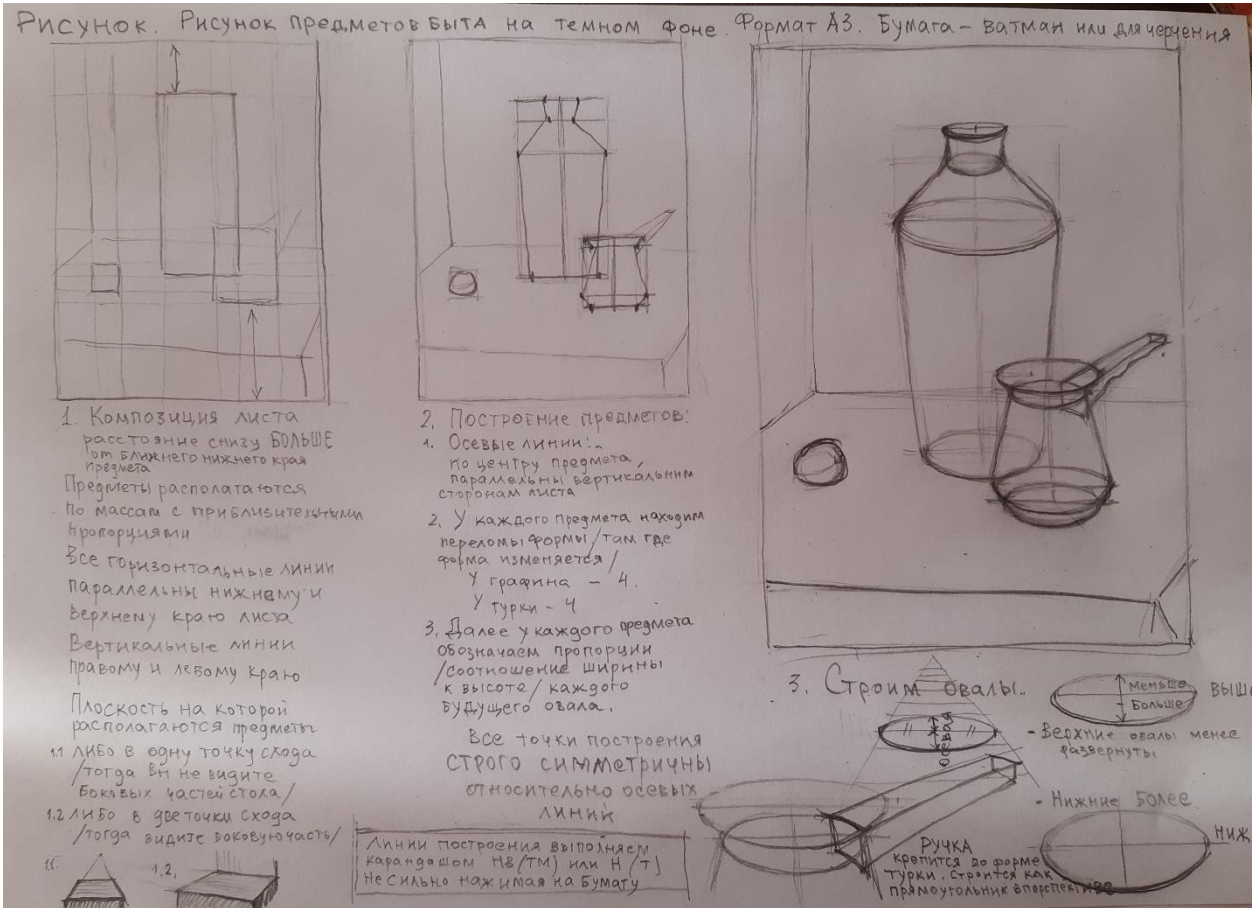 Рисунок. Рисунок предметов быта на темном фоне. Формат А3. Бумага – ватман или для черчения
1. Композиция листа
расстояние снизу БОЛЬШЕ
от ближнего нижнего края
предмета
Предметы располагаются
по массам с приблизительными
пропорциями
Все горизонтальные линии
параллельны нижнему и
верхнему краю листа
Вертикальные линии
правому и левому краю
Плоскость на которой
располагаются предметы
1.1 либо в одну точку схода
/тогда вы не видите
боковых частей стола/
1.2 либо в две точки схода
/тогда видите боковую часть/
1.2.
2. Построение предметов:
1. Осевые линии:
по центру предмета,
параллельны вертикальным
сторонам листа
2. У каждого предмета находим
переломы формы /там где
форма изменяется/
У графина – 4.
У турки – 4
3. Далее у каждого предмета
обозначаем пропорции
/соотношение ширины
к высоте/ каждого
будущего овала.
Все точки построения
строго симметричны
относительно осевых
линий
Линии построения выполняем
карандашом НВ (ТМ) или Н (Т)
не сильно нажимая на бумагу
3. Строим овалы..
осевая
меньше
больше
- Верхние овалы менее
развернуты
- Нижние более
Ручка
крепится по форме
турки. Строится как
прямоугольник в перспективе